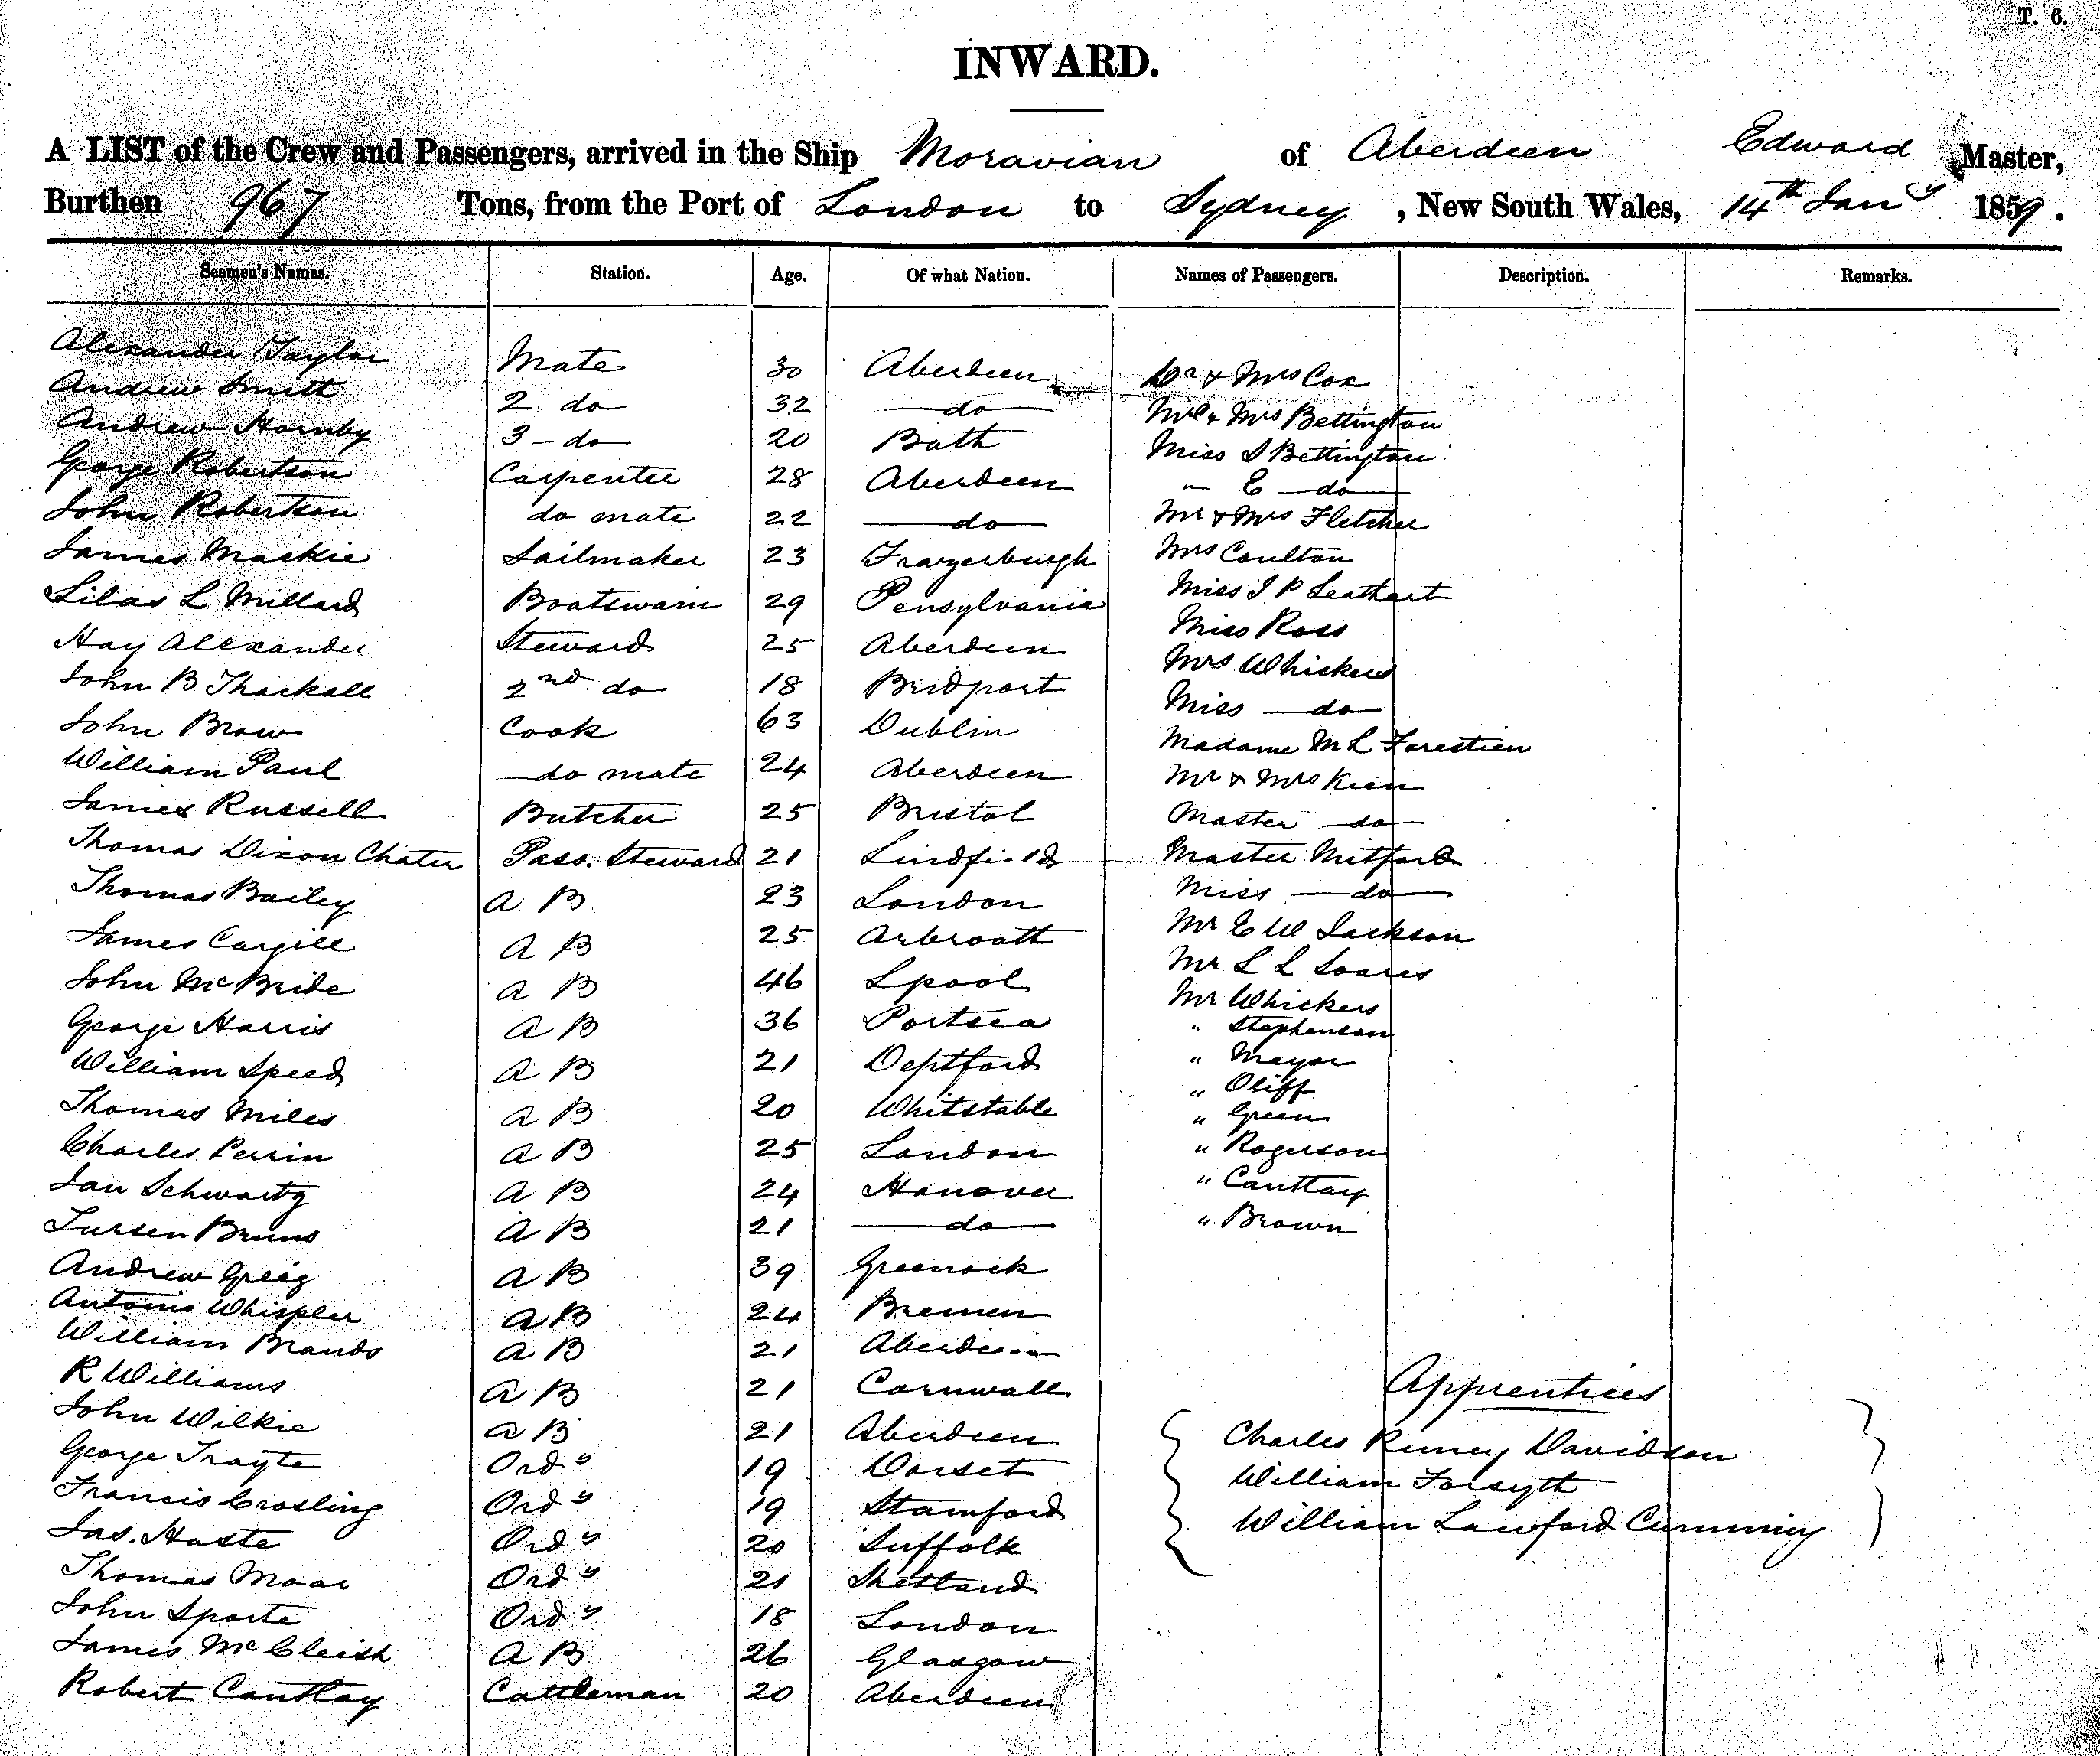 T. 6.
INWARD.
A LIST of the Crew and Passengers, arrived in the Ship Moravian of Aberdeen Edward Master,
Burthen 967 Tons, from the Port of London to Sydney, New South Wales, 14th Jany 1859.
Seamen's Names. Station. Age. Of what Nation. Names of Passengers. Description. Remarks.
Alexander Taylor Mate 30 Aberdeen Dr & Mrs Cox
Andrew Smith 2 do 32 do Mr & Mrs Bettington
Andrew Hornby 3 - do 20 Bath Miss I Bettington
George Robertson Carpenter 28 Aberdeen " E do
John Robertson do mate 22 do Mr & Mrs Fletcher
James Mackie Sailmaker 23 Frazerburgh Mrs Coulton
Silas L Millard Boatswain 29 Pensylvania Miss I P Leathart
Hay Alexander Steward 25 Aberdeen Miss Ross
John B Thackall 2nd do 18 Bridport Mrs Whickers
John Brow Cook 63 Dublin Miss do
William Paul do mate 24 Aberdeen Madame M L Forestien
James Russell Butcher 25 Bristol Mr & Mrs Keen
Thomas Dixon Chater Pass. Steward 21 Lindfield Master do
Thomas Bailey A B 23 London Master Mitford
James Cargill A B 25 Arbroath Miss do
John McBride A B 46 Lpool Mr E W Jackson
George Harris A B 36 Portsea Mr L L Soares
William Speed A B 21 Deptford Mr Whickers
Thomas Miles A B 20 Whitstable " Stephenson
Charles Perrin A B 25 London " Mayor
Jan Schwartz A B 24 Hanover " Oliff
Jursen Bruns A B 21 do " Green
Andrew Greig A B 39 Greenock " Rogerson
Antonis Whispler A B 24 Bremen " Cantlay
William Brands A B 21 Aberdeen " Brown
R Williams A B 21 Cornwall
John Wilkie A B 21 Aberdeen
George Trayte Ordy 19 Dorset
Francis Crosling Ordy 19 Stamford
Jas. Haste Ordy 20 Suffolk
Thomas Moar Ordy 21 Shetland
John Sporte Ordy 18 London
James McCleish A B 26 Glasgow
Robert Cantlay Cattleman 20 Aberdeen
Apprentices
Charles Davidson
William Forsyth
William Lawford Cumming